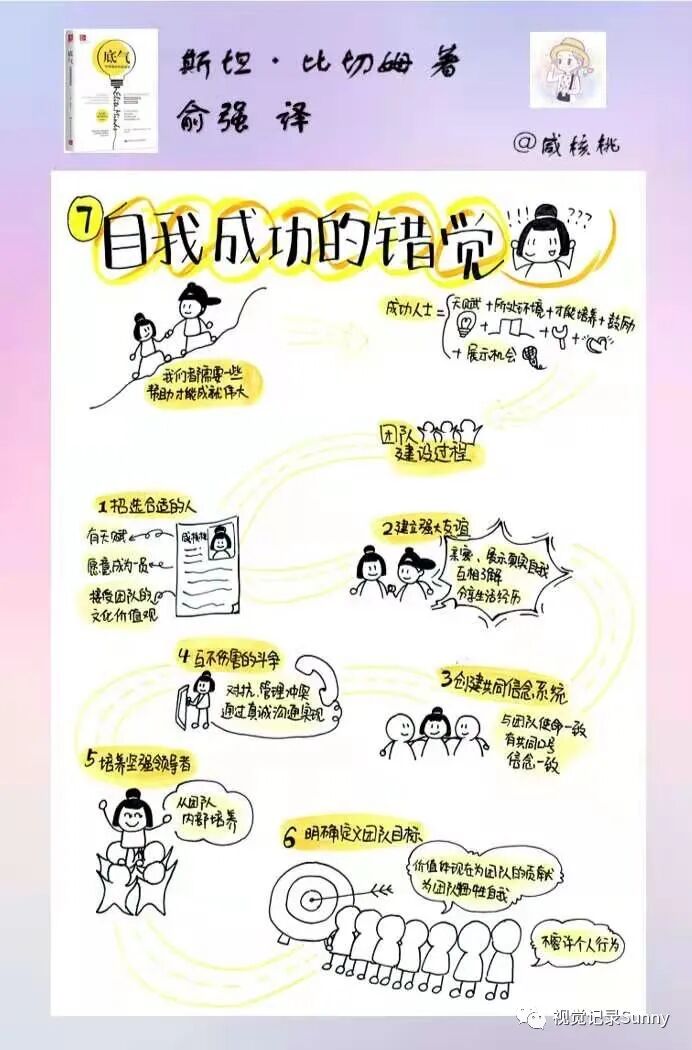 底气
Elite Minds
斯坦·比切姆 著
俞强 译
@咸核桃
7 自我成功的错觉
!!! ???
我们都需要一些
帮助才能成就伟大
成功人士={天赋+所处环境+才能培养+鼓励
+展示机会
团队
建设过程
1招选合适的人
有天赋
愿意成为一员
接受团队的
文化价值观
咸核桃
2建立强大友谊
亲密、展示真实自我
互相了解
分享生活经历
3创建共同信念系统
与团队使命一致
有共同口号
信念一致
4互不伤害的斗争
对抗、管理冲突
通过真诚沟通实现
5培养坚强领导者
从团队
内部培养
6明确定义团队目标
价值体现在为团队的贡献
为团队牺牲自我
不容许个人行为
视觉记录Sunny